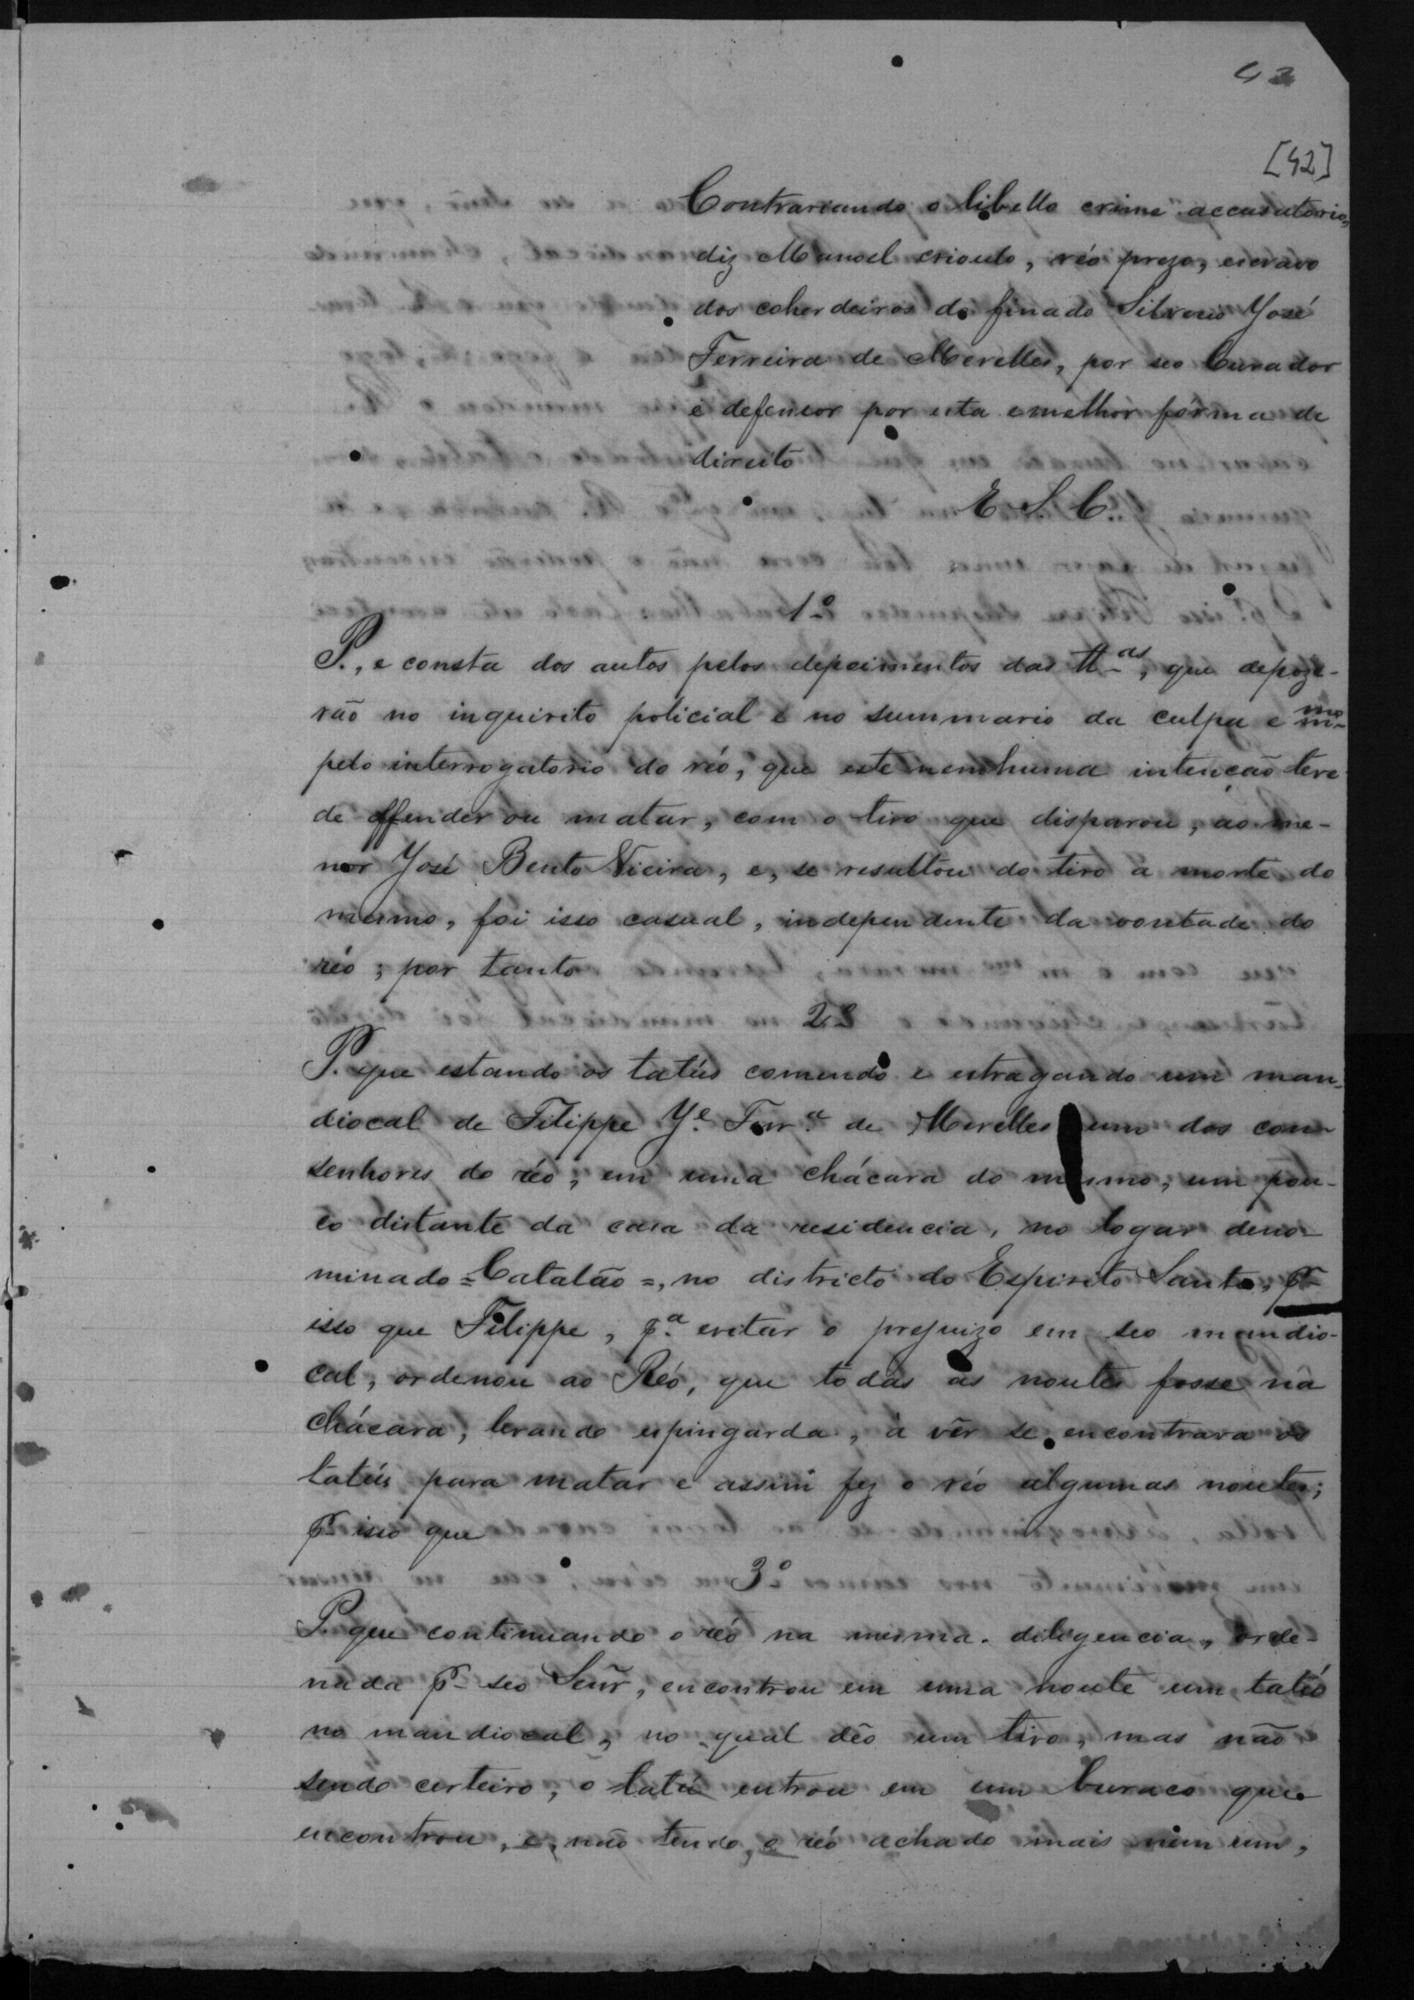 42
[42]
Contrariando o libello crime accusatorio,
diz Manoel crioulo, réo prezo, escravo
dos coherdeiros do finado Silverio José
Ferreira de Merelles, por seo Curador
e defensor por esta e melhor fórma de
direito
E. S. C.
1º
P., e consta dos autos pelos depoimentos das ttas, que depoze-
rão no inquirito policial e no summario da culpa e mmo
pelo interrogatorio do réo, que este nemhuma intenção teve
de offender ou matar, com o tiro que disparou, ao me-
nor José Bento Vieira, e, se resultou do tiro a morte do
mesmo, foi isso casual, independente da vontade do
réo; por tanto
2º
P. que estando os tatús comendo e estragando um man-
diocal de Filippe Je. Ferra. de Merelles um dos con-
senhores do réo, em uma chácara do mesmo, um pou-
co distante da casa da residencia, no logar deno-
minado = Catalão =, no districto do Espirito Santo, pr
isso que Filippe, pa. evitar o prejuizo em seo mandio-
cal, ordenou ao Réo, que todas as noutes fosse na
chácara, levando espingarda, á vêr se encontrava os
tatús para matar e assim fez o réo algumas noutes;
pr isso que
3º
P. que continuando o réo na mesma diligencia, orde-
nada pr seo Senr̃, encontrou em uma noute um tatú
no mandiocal, no qual déo um tiro, mas não
sendo certeiro, o tatú entrou em um buraco que
encontrou, e, não tendo o réo achado mais nem um,